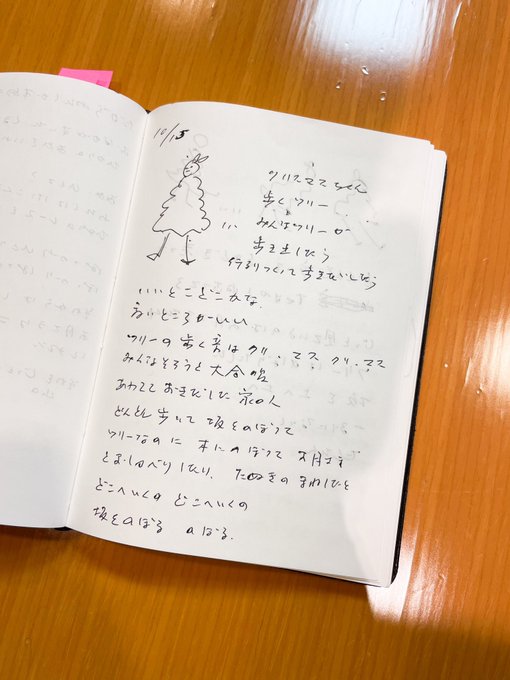 10/15
クリスマスちゃん
歩くツリー
みんなツリーが
歩き出したら
行列つくって歩きだしたら
いいとこどこかな
高いところがいい
ツリーの歩く音は クリ、マス クリ、ママ
みんなそろうと大合唱
あわてておきだした家の人
どんどん歩いて坂をのぼって
ツリーなのに 木にのぼって お月さま
とおしゃべりしたり、たぬきの まねしたり
どこへいくの どこへいくの
坂をのぼる のぼる.